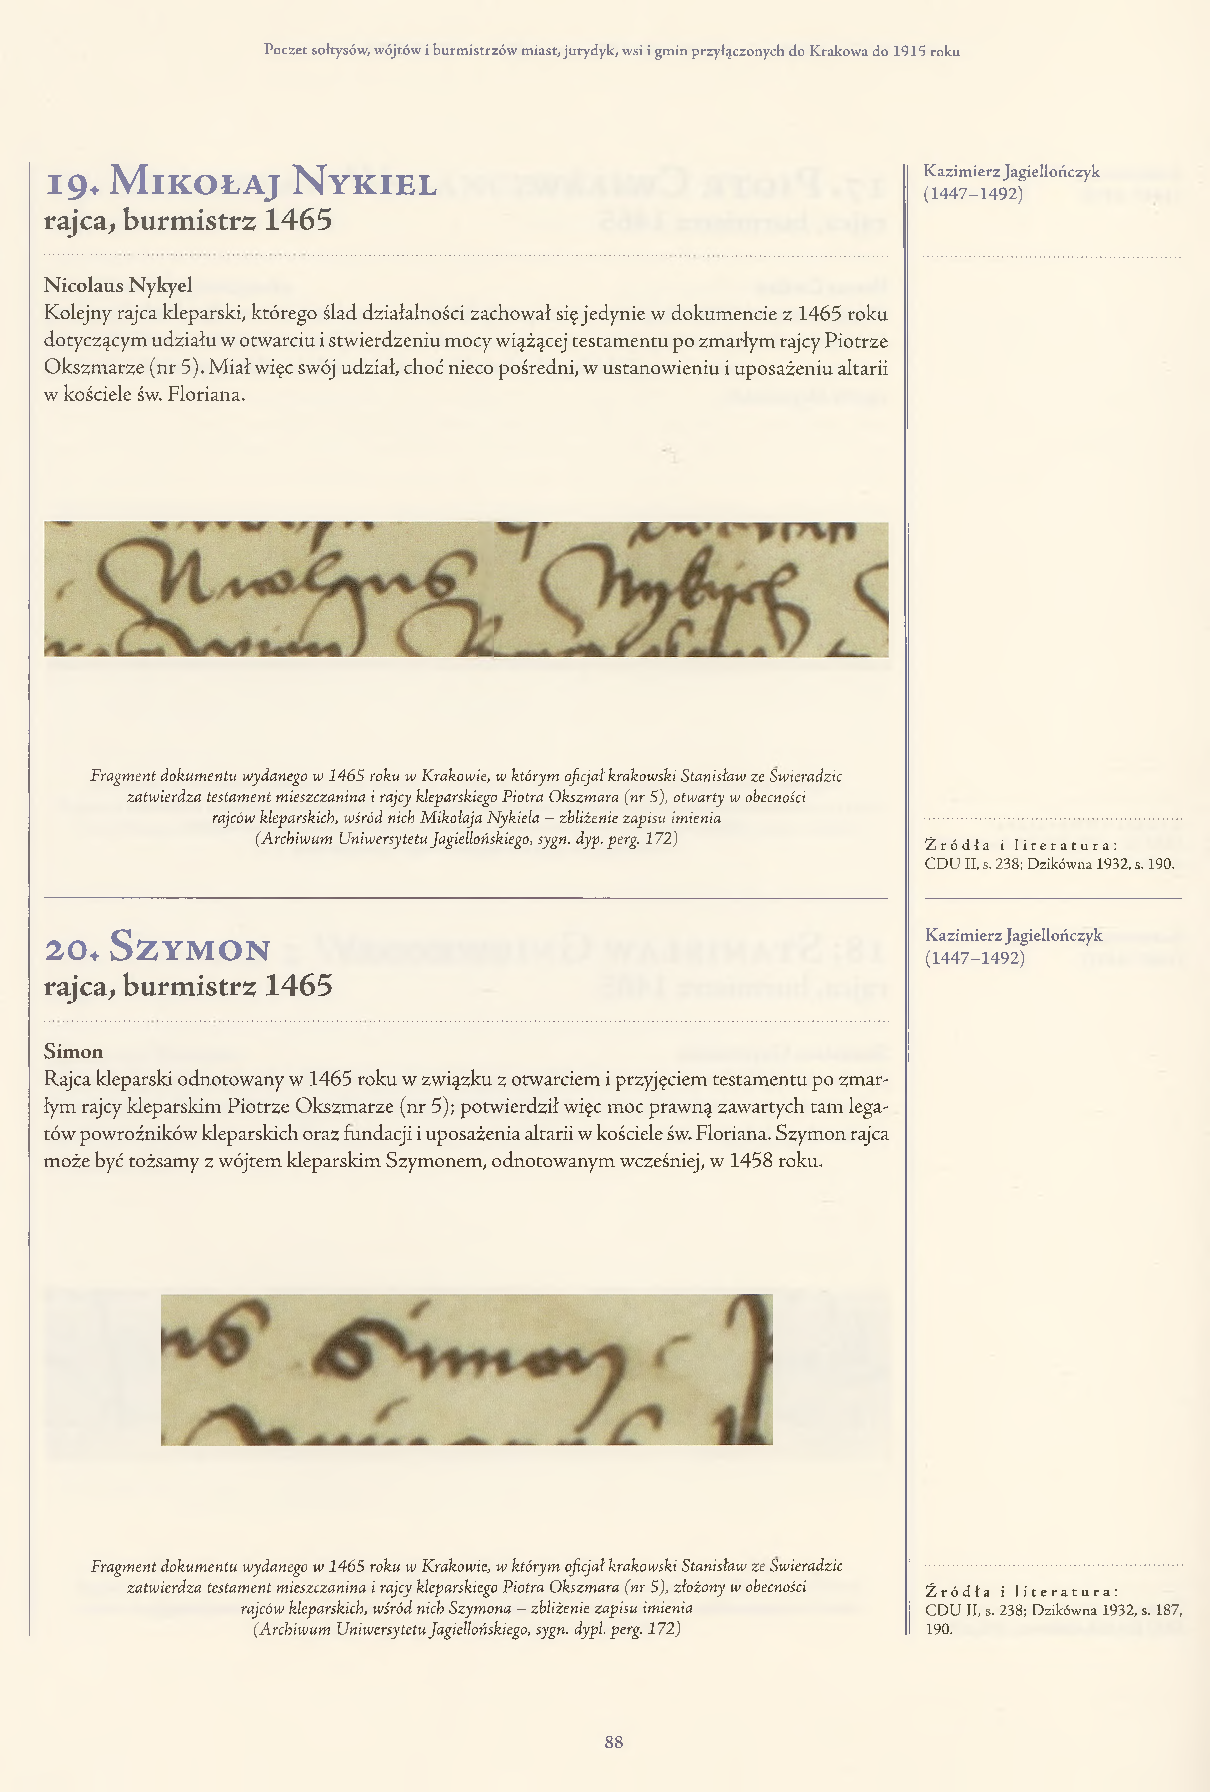 Poczet sołtysów, wójtów i burmistrzów miast, jurydyk, wsi i gmin przyłączonych do Krakowa do 1915 roku
19. Mikołaj Nykiel
rajca, burmistrz 1465
Nicolaus Nykyel
Kolejny rajca kleparski, którego ślad działalności zachował się jedynie w dokumencie z 1465 roku
dotyczącym udziału w otwarciu i stwierdzeniu mocy wiążącej testamentu po zmarłym rajcy Piotrze
Okszmarze (nr 5). Miał więc swój udział, choć nieco pośredni, w ustanowieniu i uposażeniu altarii
w kościele św. Floriana.
Kazimierz Jagiellończyk
(1447–1492)
Nicolaus Nykiel
Fragment dokumentu wydanego w 1465 roku w Krakowie, w którym oficjał krakowski Stanisław ze Świeradzic
zatwierdza testament mieszczanina i rajcy kleparskiego Piotra Okszmara (nr 5), otwarty w obecności
rajców kleparskich, wśród nich Mikołaja Nykiela – zbliżenie zapisu imienia
(Archiwum Uniwersytetu Jagiellońskiego, sygn. dyp. perg. 172)
Źródła i literatura:
CDU II, s. 238; Dzikówna 1932, s. 190.
20. Szymon
rajca, burmistrz 1465
Simon
Rajca kleparski odnotowany w 1465 roku w związku z otwarciem i przyjęciem testamentu po zmar-
łym rajcy kleparskim Piotrze Okszmarze (nr 5); potwierdził więc moc prawną zawartych tam lega-
tów powroźników kleparskich oraz fundacji i uposażenia altarii w kościele św. Floriana. Szymon rajca
może być tożsamy z wójtem kleparskim Szymonem, odnotowanym wcześniej, w 1458 roku.
Kazimierz Jagiellończyk
(1447–1492)
Simon
Fragment dokumentu wydanego w 1465 roku w Krakowie, w którym oficjał krakowski Stanisław ze Świeradzic
zatwierdza testament mieszczanina i rajcy kleparskiego Piotra Okszmara (nr 5), złożony w obecności
rajców kleparskich, wśród nich Szymona – zbliżenie zapisu imienia
(Archiwum Uniwersytetu Jagiellońskiego, sygn. dypl. perg. 172)
Źródła i literatura:
CDU II, s. 238; Dzikówna 1932, s. 187,
190.
88